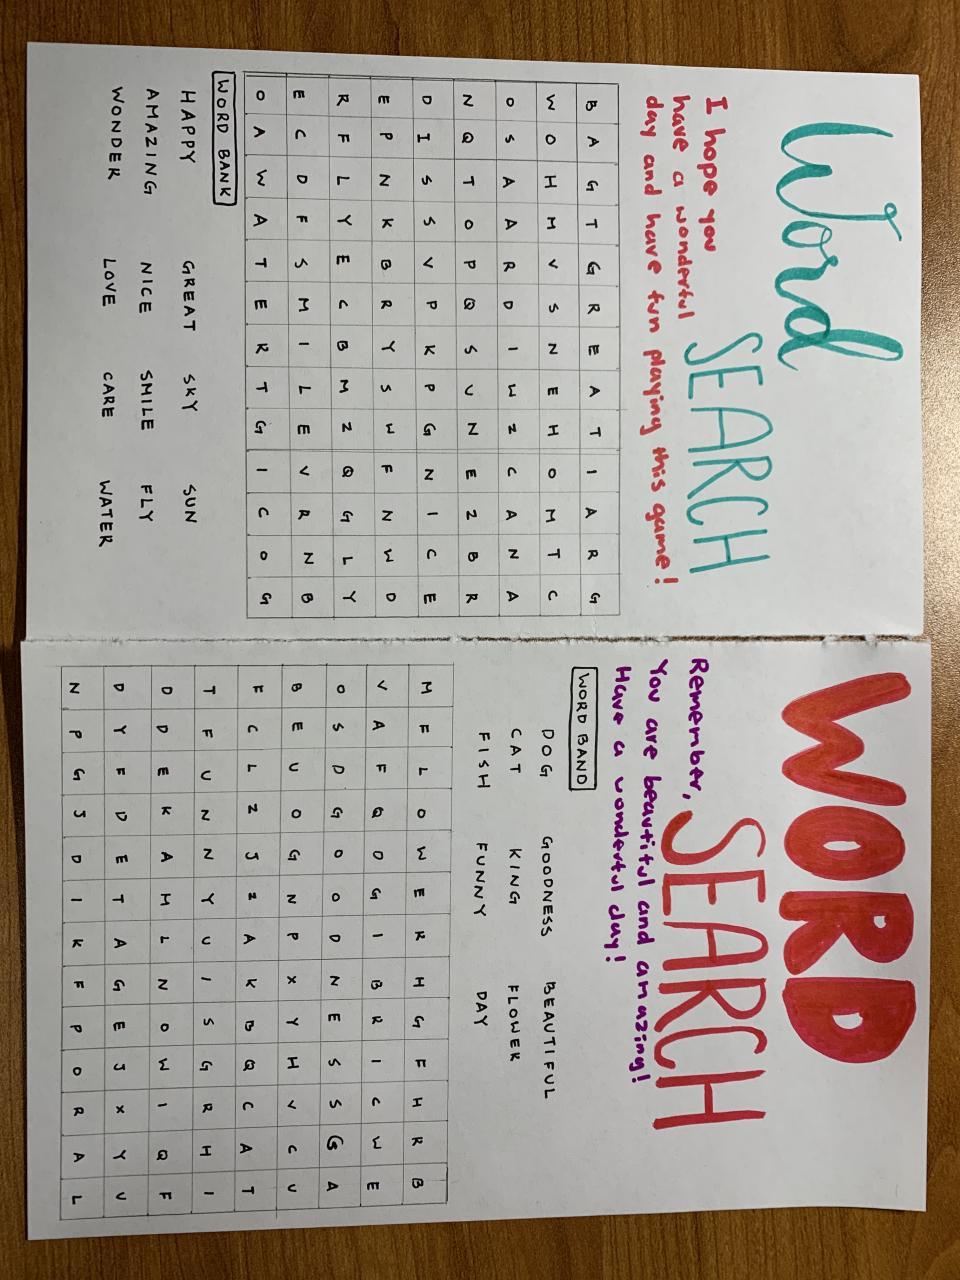 Word
SEARCH
I hope you
have a wonderful
day and have fun playing this game!
B A G T G R E A T I A R G
W O H M V S N E H O M T C
O S A A R D I W Z C A N A
N Q T O P Q S U N E Z B R
D I S S V P K P G N I C E
E P N K B R Y S W F N W D
R F L Y E C B M Z Q G L Y
E C D F S M I L E V R N B
O A W A T E R T G I C O G
WORD BANK
HAPPY GREAT SKY SUN
AMAZING NICE SMILE FLY
WONDER LOVE CARE WATER
WORD
SEARCH
Remember,
You are beautiful and amazing!
Have a wonderful day!
WORD BAND
DOG GOODNESS BEAUTIFUL
CAT KING FLOWER
FISH FUNNY DAY
M F L O W E R H G F H R B
V A F Q O G I B R I C W E
O S D G O O D N E S S G A
B E U O G N P X Y H V C U
F C L Z J Z A K B Q C A T
T F U N N Y U I S G R H I
D D E K A M L N O W I Q F
D Y F D E T A G E J X Y U
N P G J D I K F P O R A L